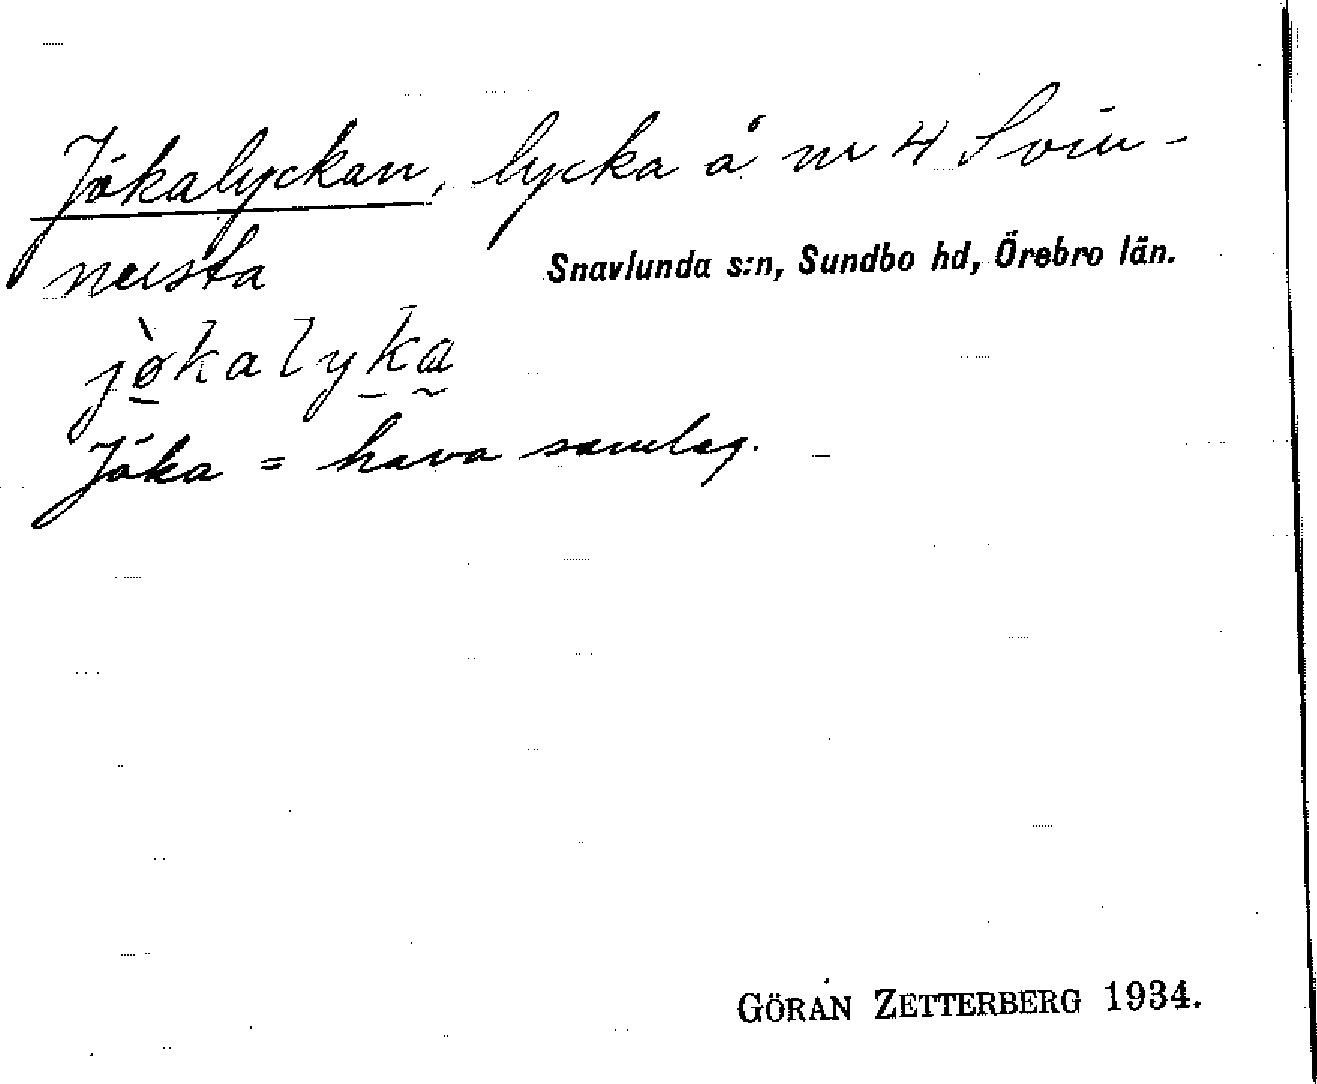 Jökalyckan, lycka å nr 4 Svin-
nersta
Snavlunda s:n, Sundbo hd, Örebro län.
jø̀kalyka
Jöka = hava samlag.
GÖRAN ZETTERBERG 1934.